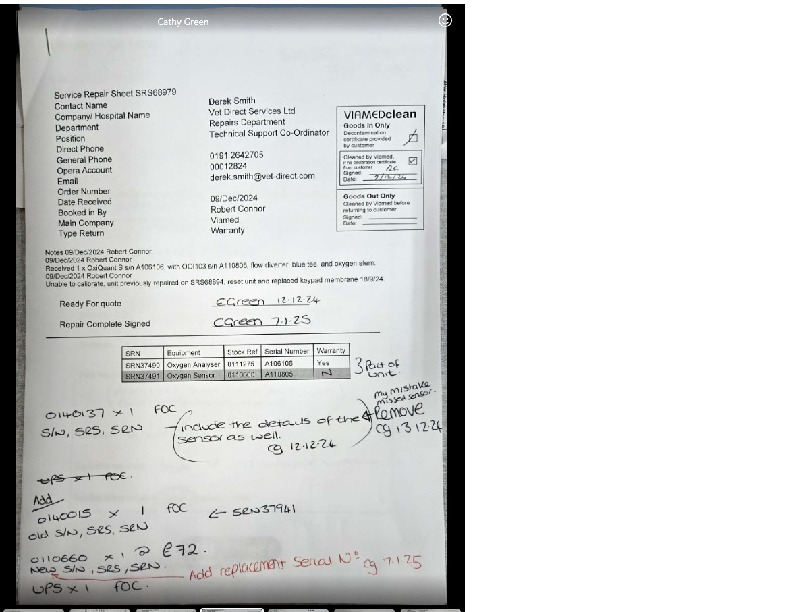 Cathy Green
Service Repair Sheet SRS68979
Contact Name Derek Smith
Company/Hospital Name Vet Direct Services Ltd
Department Repairs Department
Position Technical Support Co-Ordinator
Direct Phone
General Phone 0191 2642705
Opera Account 00012824
Email derek.smith@vet-direct.com
Order Number
Date Received 09/Dec/2024
Booked in By Robert Connor
Main Company Viamed
Type Return Warranty
VIAMEDclean
Goods In Only
Decontamination
certificate provided
by customer
Cleaned by Viamed,
if no
from customer
Signed
Date:
Goods Out Only
Cleaned by Viamed before
returning to customer
Signed
Date:
Notes 09/Dec/2024 Robert Connor
09/Dec/2024 Robert Connor
Received 1 x OxiQuant S s/n A106106, with OCI103 s/n A110805, flow diverter, blue tee, and oxygen stem.
09/Dec/2024 Robert Connor
Unable to calibrate, unit previously repaired on SRS68694, reset unit and replaced keypad membrane 18/9/24.
Ready For quote CGreen 12.12.24
Repair Complete Signed CGreen 7.1.25
SRN Equipment Stock Ref Serial Number Warranty
SRN37490 Oxygen Analyser 0111275 A106106 Yes
SRN37491 Oxygen Sensor 0110600 A110805 N
} Part of
unit
0140137 x 1 FOC
S/N, SRS, SRN
include the details of the
sensor as well.
cg 12.12.24
my mistake
missed sensor.
Remove
cg 13.12.24
UPS x 1 FOC.
Add
0140015 x 1 FOC ← SRN37941
old S/N, SRS, SRN
0110660 x 1 @ £72.
New S/N, SRS, SRN.
Add replacement Serial Nº cg 7.1.25
UPS x 1 FOC.